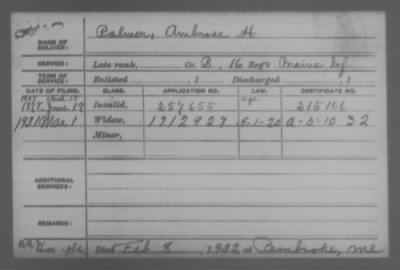 NAME OF SOLDIER: Palmer, Ambrose H
SERVICE: Late rank, Co. B, 16 Reg't Maine Inf
TERM OF SERVICE: Enlisted , 1 Discharged , 1
DATE OF FILING. CLASS. APPLICATION NO. LAW. CERTIFICATE NO.
June 19 Invalid, 257655 215106
Mar. 1 Widow, 1712927 5-1-20 A-5-10-32
Minor,
ADDITIONAL SERVICES:
REMARKS:
Died Feb 8, 1932 at Pembroke, Me